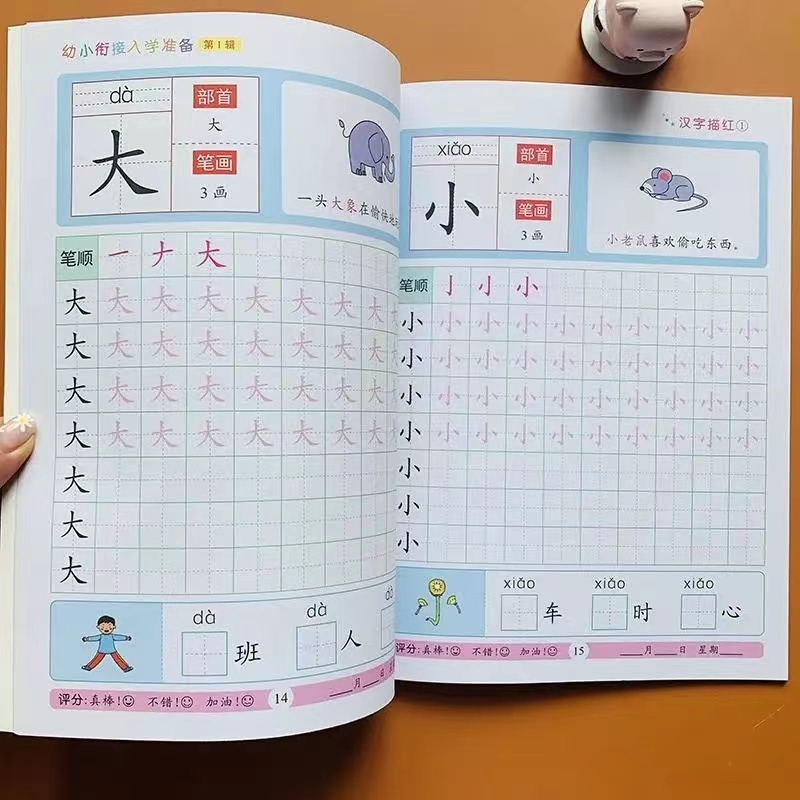 幼小衔接入学准备 第1辑
dà
大
部首
大
笔画
3画
一头大象在愉快地
笔顺 一 ナ 大
大 大 大 大 大 大 大 大
大 大 大 大 大 大 大 大
大 大 大 大 大 大 大 大
大 大 大 大 大 大 大 大
大
大
大
dà dà dà
班 人
评分:真棒! 不错! 加油! 14 ____月____日
汉字描红①
xiǎo
小
部首
小
笔画
3画
小老鼠喜欢偷吃东西。
笔顺 亅 小 小
小 小 小 小 小 小 小 小 小 小
小 小 小 小 小 小 小 小 小 小
小 小 小 小 小 小 小 小 小 小
小 小 小 小 小 小 小 小 小 小
小
小
小
xiǎo xiǎo xiǎo
车 时 心
评分:真棒! 不错! 加油! 15 ____月____日 星期____